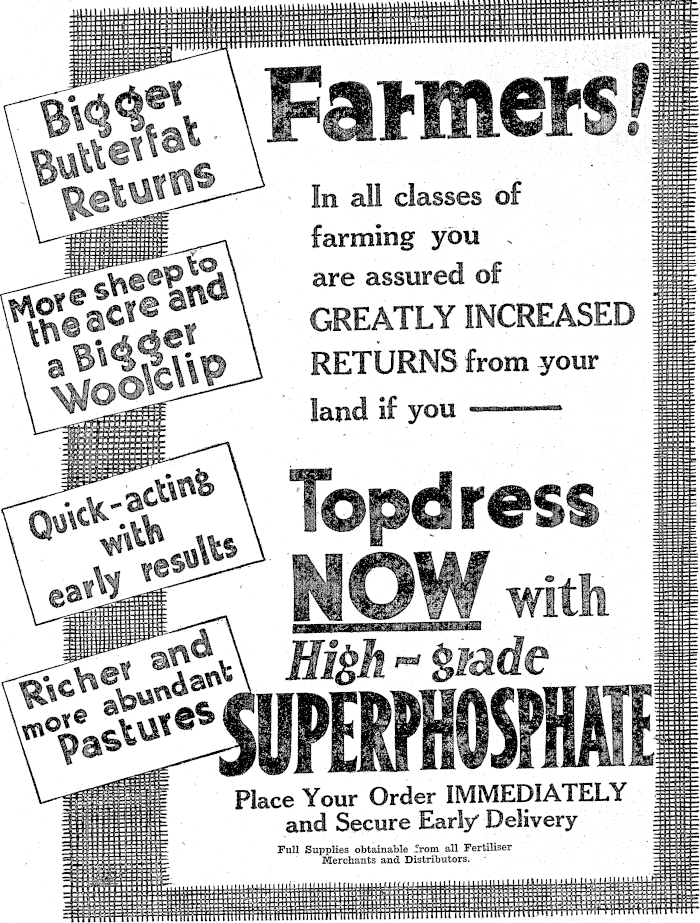 Farmers!
In all classes of
farming you
are assured of
GREATLY INCREASED
RETURNS from your
land if you ——
Bigger
Butterfat
Returns
More sheep to
the acre and
a Bigger
Woolclip
Quick-acting
with
early results
Richer and
more abundant
Pastures
Topdress
NOW with
High-grade
SUPERPHOSPHATE
Place Your Order IMMEDIATELY
and Secure Early Delivery
Full Supplies obtainable from all Fertiliser
Merchants and Distributors.